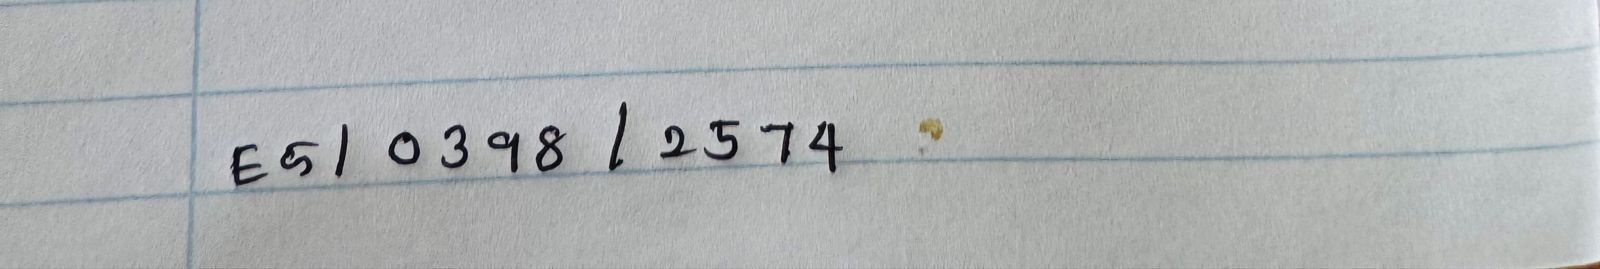 E5/ 0398 / 2574